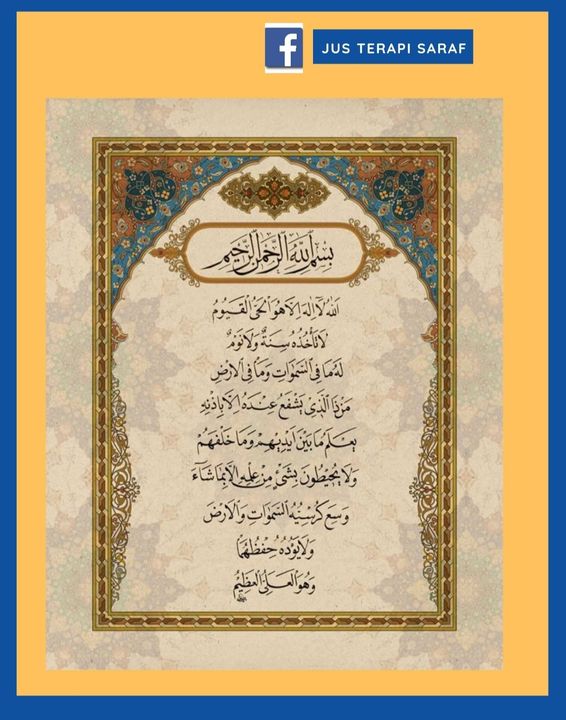 JUS TERAPI SARAF
بِسْمِ اللَّهِ الرَّحْمٰنِ الرَّحِيمِ
اَللّٰهُ لَآ اِلٰهَ اِلَّا هُوَ الْحَيُّ الْقَيُّومُ
لَا تَأْخُذُهُ سِنَةٌ وَلَا نَوْمٌ
لَهُ مَا فِي السَّمٰوَاتِ وَمَا فِي الْاَرْضِ
مَنْ ذَا الَّذِي يَشْفَعُ عِنْدَهُ اِلَّا بِاِذْنِهِ
يَعْلَمُ مَا بَيْنَ اَيْدِيهِمْ وَمَا خَلْفَهُمْ
وَلَا يُحِيطُونَ بِشَيْءٍ مِنْ عِلْمِهِ اِلَّا بِمَا شَآءَ
وَسِعَ كُرْسِيُّهُ السَّمٰوَاتِ وَالْاَرْضَ
وَلَا يَؤُدُهُ حِفْظُهُمَا
وَهُوَ الْعَلِيُّ الْعَظِيمُ